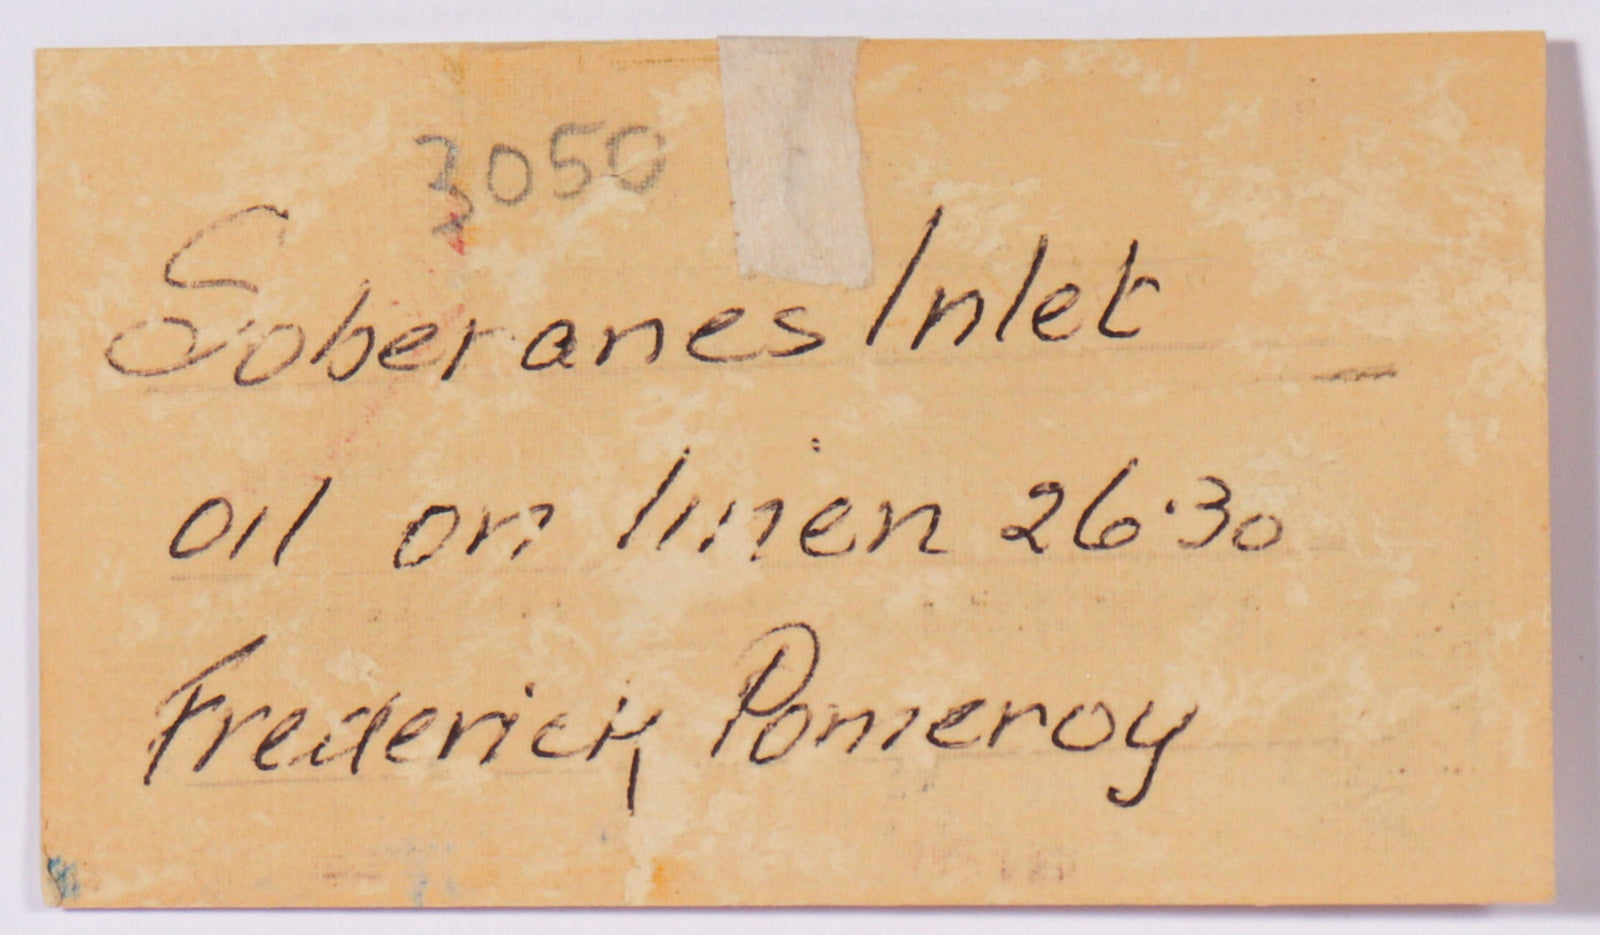 3050
Soberanes Inlet
oil on linen 26·30
Frederick Pomeroy